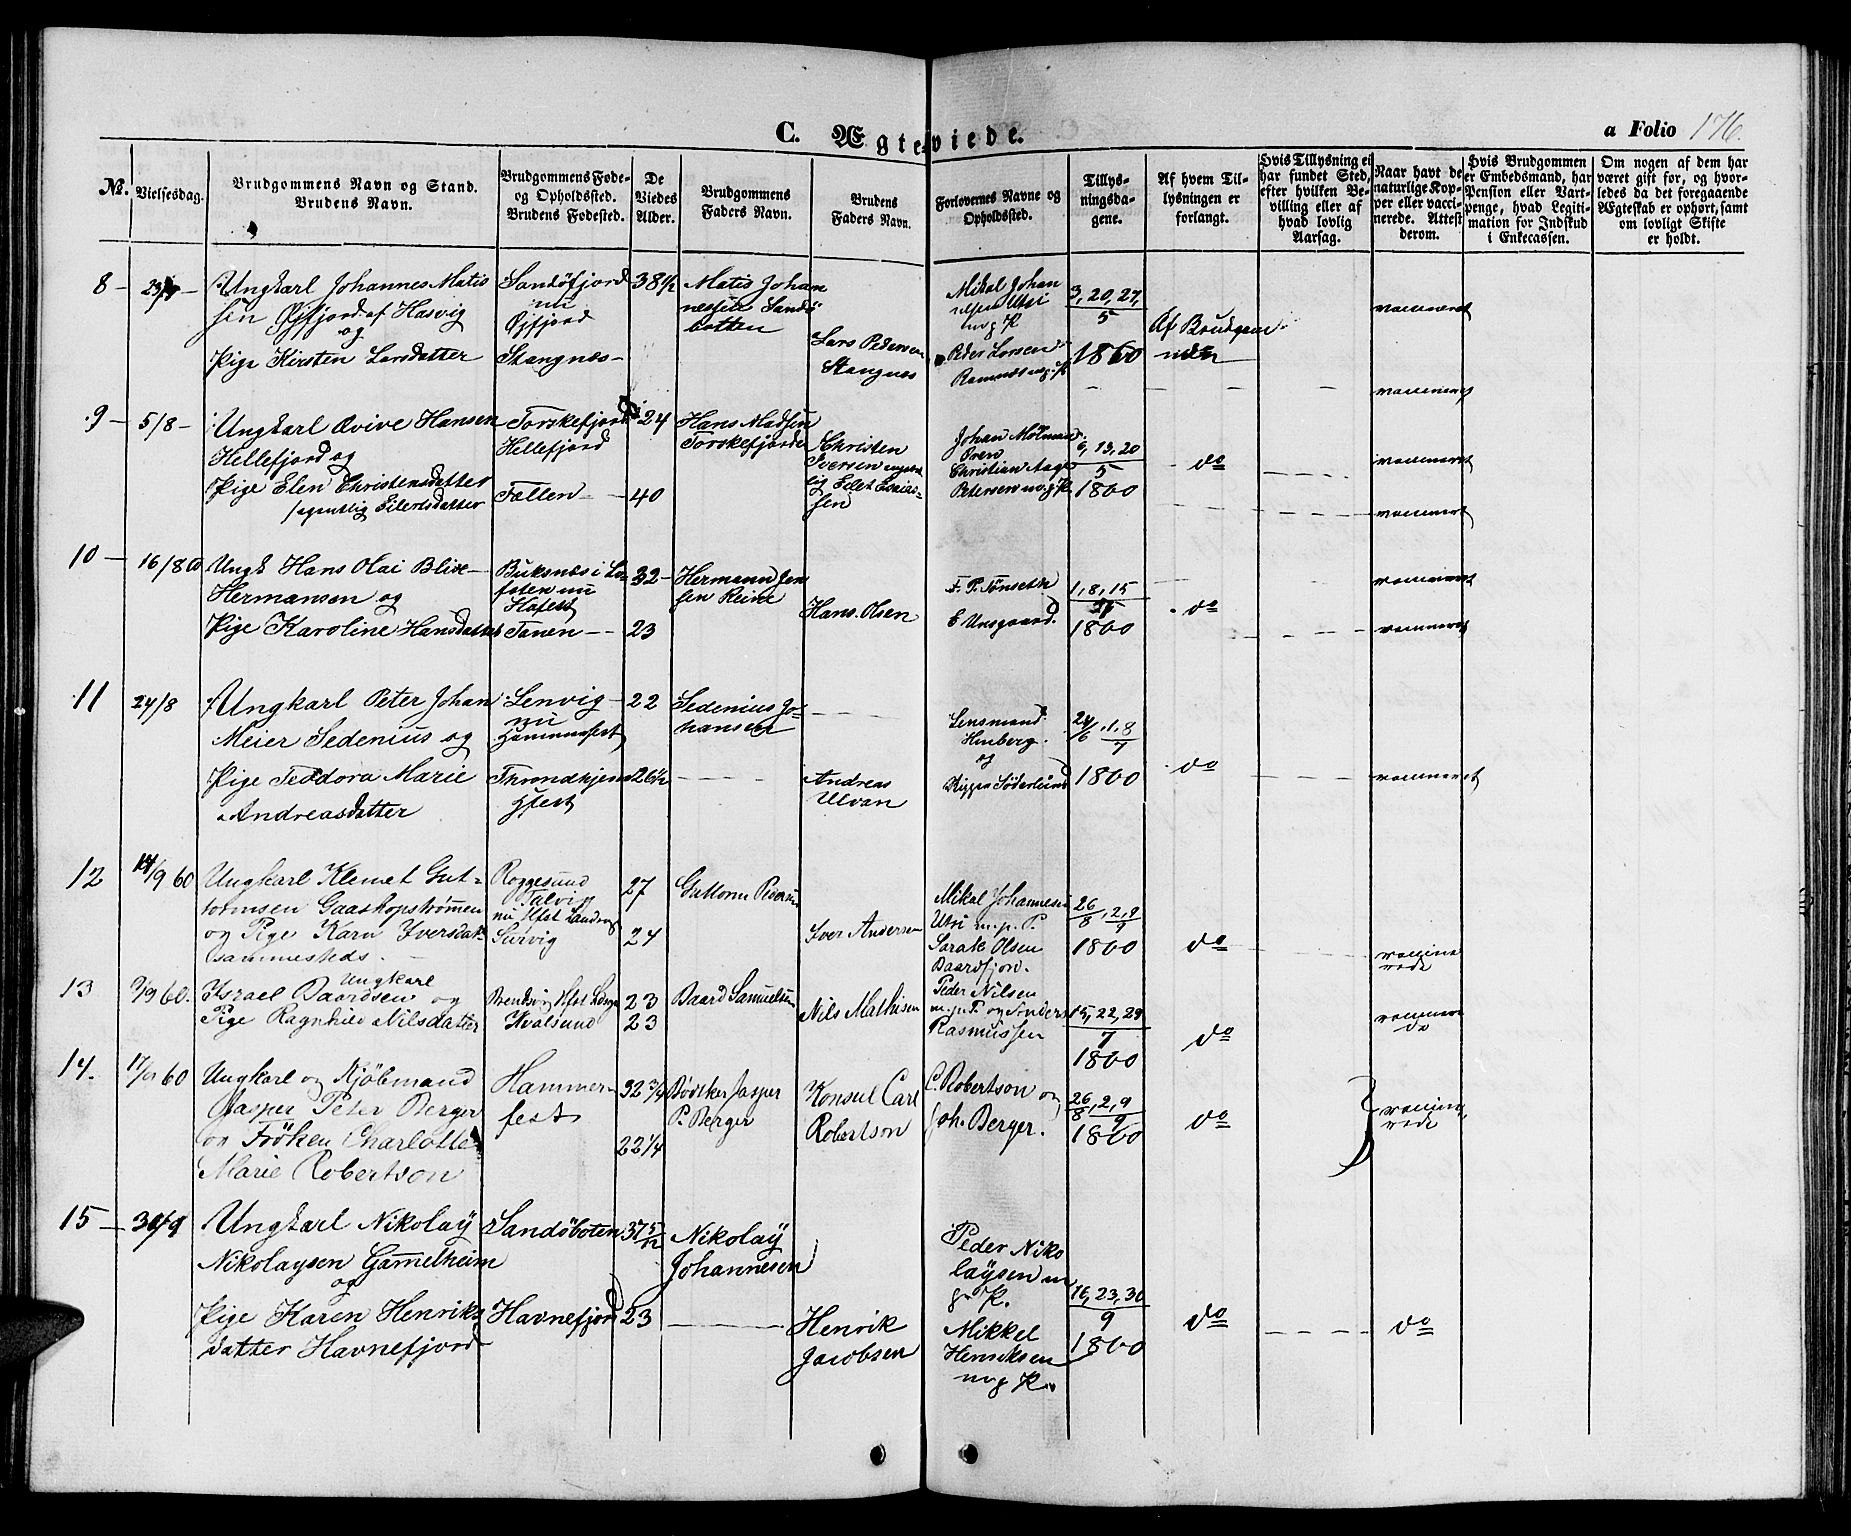 C. Ægteviede.
a Folio 176.
No.
Vielsesdag.
Brudgommens Navn og Stand.
Brudens Navn.
Brudgommens Føde-
og Opholdssted.
Brudens Fødested.
De
Viedes
Alder.
Brudgommens
Faders Navn.
Brudens
Faders Navn.
Forlovernes Navne og
Opholdssted.
Tillys-
ningsda-
gene.
Af hvem Til-
lysningen er
forlangt.
Hvis Tillysning ei
har fundet Sted,
efter hvilken Be-
villing eller af
hvad lovlig
Aarsag.
Naar havt de
naturlige Kop-
per eller vacci-
nerede. Attest
derom.
Hvis Brudgommen
er Embedsmand, har
Pension eller Vart-
penge, hvad Legiti-
mation for Indskud
i Enkecassen.
Om nogen af dem har
været gift før, og hvor-
ledes da det foregaaende
Ægteskab er ophørt, samt
om lovligt Skifte
er holdt.
8 –
Ungkarl Johannes Matis
sen Øifjord af Hasvig
og
Pige Kirsten Larsdatter
Sandøfjord
nu
Øifjord
Stangnæs –
38 1/2
Matis Johan
nessen Sandø
botten
Lars Pedersen
Stangnæs
Mikal Johan
nesen Utsi
m p P
Peder Larsen
3, 20, 27,
5
1860
Af Brudgom-
men
9 –
5/8 –
Ungkarl Hansen
Hellefjord og
Pige Elen Christensdatter
/egentlig Eilertsdatter
Torskefjord
Hellefjord
Fællen –
24
40
Hans Madsen
Torskefjorden
Christen
Iversen egent
lig Eilert Esaias-
sen
Christian Aage
Petersen
6, 13, 20
5
1860
do
10 –
16/8
Ungk Hans Olai Blix
Hermansen og
Pige Karoline Hansdatter
Buksnæs i Lo-
foten nu
Hafest
Tanen –
32 –
23
Hermann Jen
sen Reine
Hans Olsen
F. P. Tønseth
E Unsgaard.
1, 8, 15
1860
do
11
24/8
Ungkarl Peter Johan
Meier Sedenius og
Pige Teodora Marie
Andreasdatter
Lenvig –
nu
Hammerfest
Throndhjem
Hfest
22
26 1/2
Sedenius Jo-
hansen
Andreas
Ulvan
Lensmand
og
Søderlund
24/6, 1, 8
7
1860
do
12
14/9 60
Ungkarl Klemet Gut-
tormsen Gaashopstrømmen
og Pige Karn Iversdat-
sammesteds. –
Roggesund
Talvig
nu Hfst Landsogn
Survig
27
24
Guttorm Pedersen
Iver Andersen
Mikal Johannesen
Utsi m. p. P.
Sarak Olsen
Baardfjord.
26/8, 2, 9
9
1860
do
vaccine
rede
13
9/9 60.
Ungkarl
Israel Baardsen og
Pige Ragnhild Nilsdatter
Hfst Ldsogn
Kvalsund
23
23
Baard Samuelsen
Nils Mathisen
Peder Nilsen
m. p. P. og Anders
Rasmussen
15, 22, 29
7
1860
do
14.
17/9 60
Ungkarl og Kjøbmand
Jasper Peter Berger
og Frøken Charlotte
Marie Robertson
Hammer-
fest
32 3/4
22 1/4
Bødtker Jasper
P. Berger
Konsul Carl
Robertson
C. Robertson og
Joh. Berger.
26/8, 2, 9
9
1860
do
vaccine
rede
15 –
30/9
Ungkarl Nikolaÿ
Nikolaysen Gamelheim
og
Pige Karen Henriks
datter Havnefjord
Sandøboten
Havnefjord
37 5/12
23
Nikolaÿ
Johannesen
Henrik
Jacobsen
Peder Niko
laÿsen m
p P.
Mikkel
Henriksen
16, 23, 30
9
1860
do
do